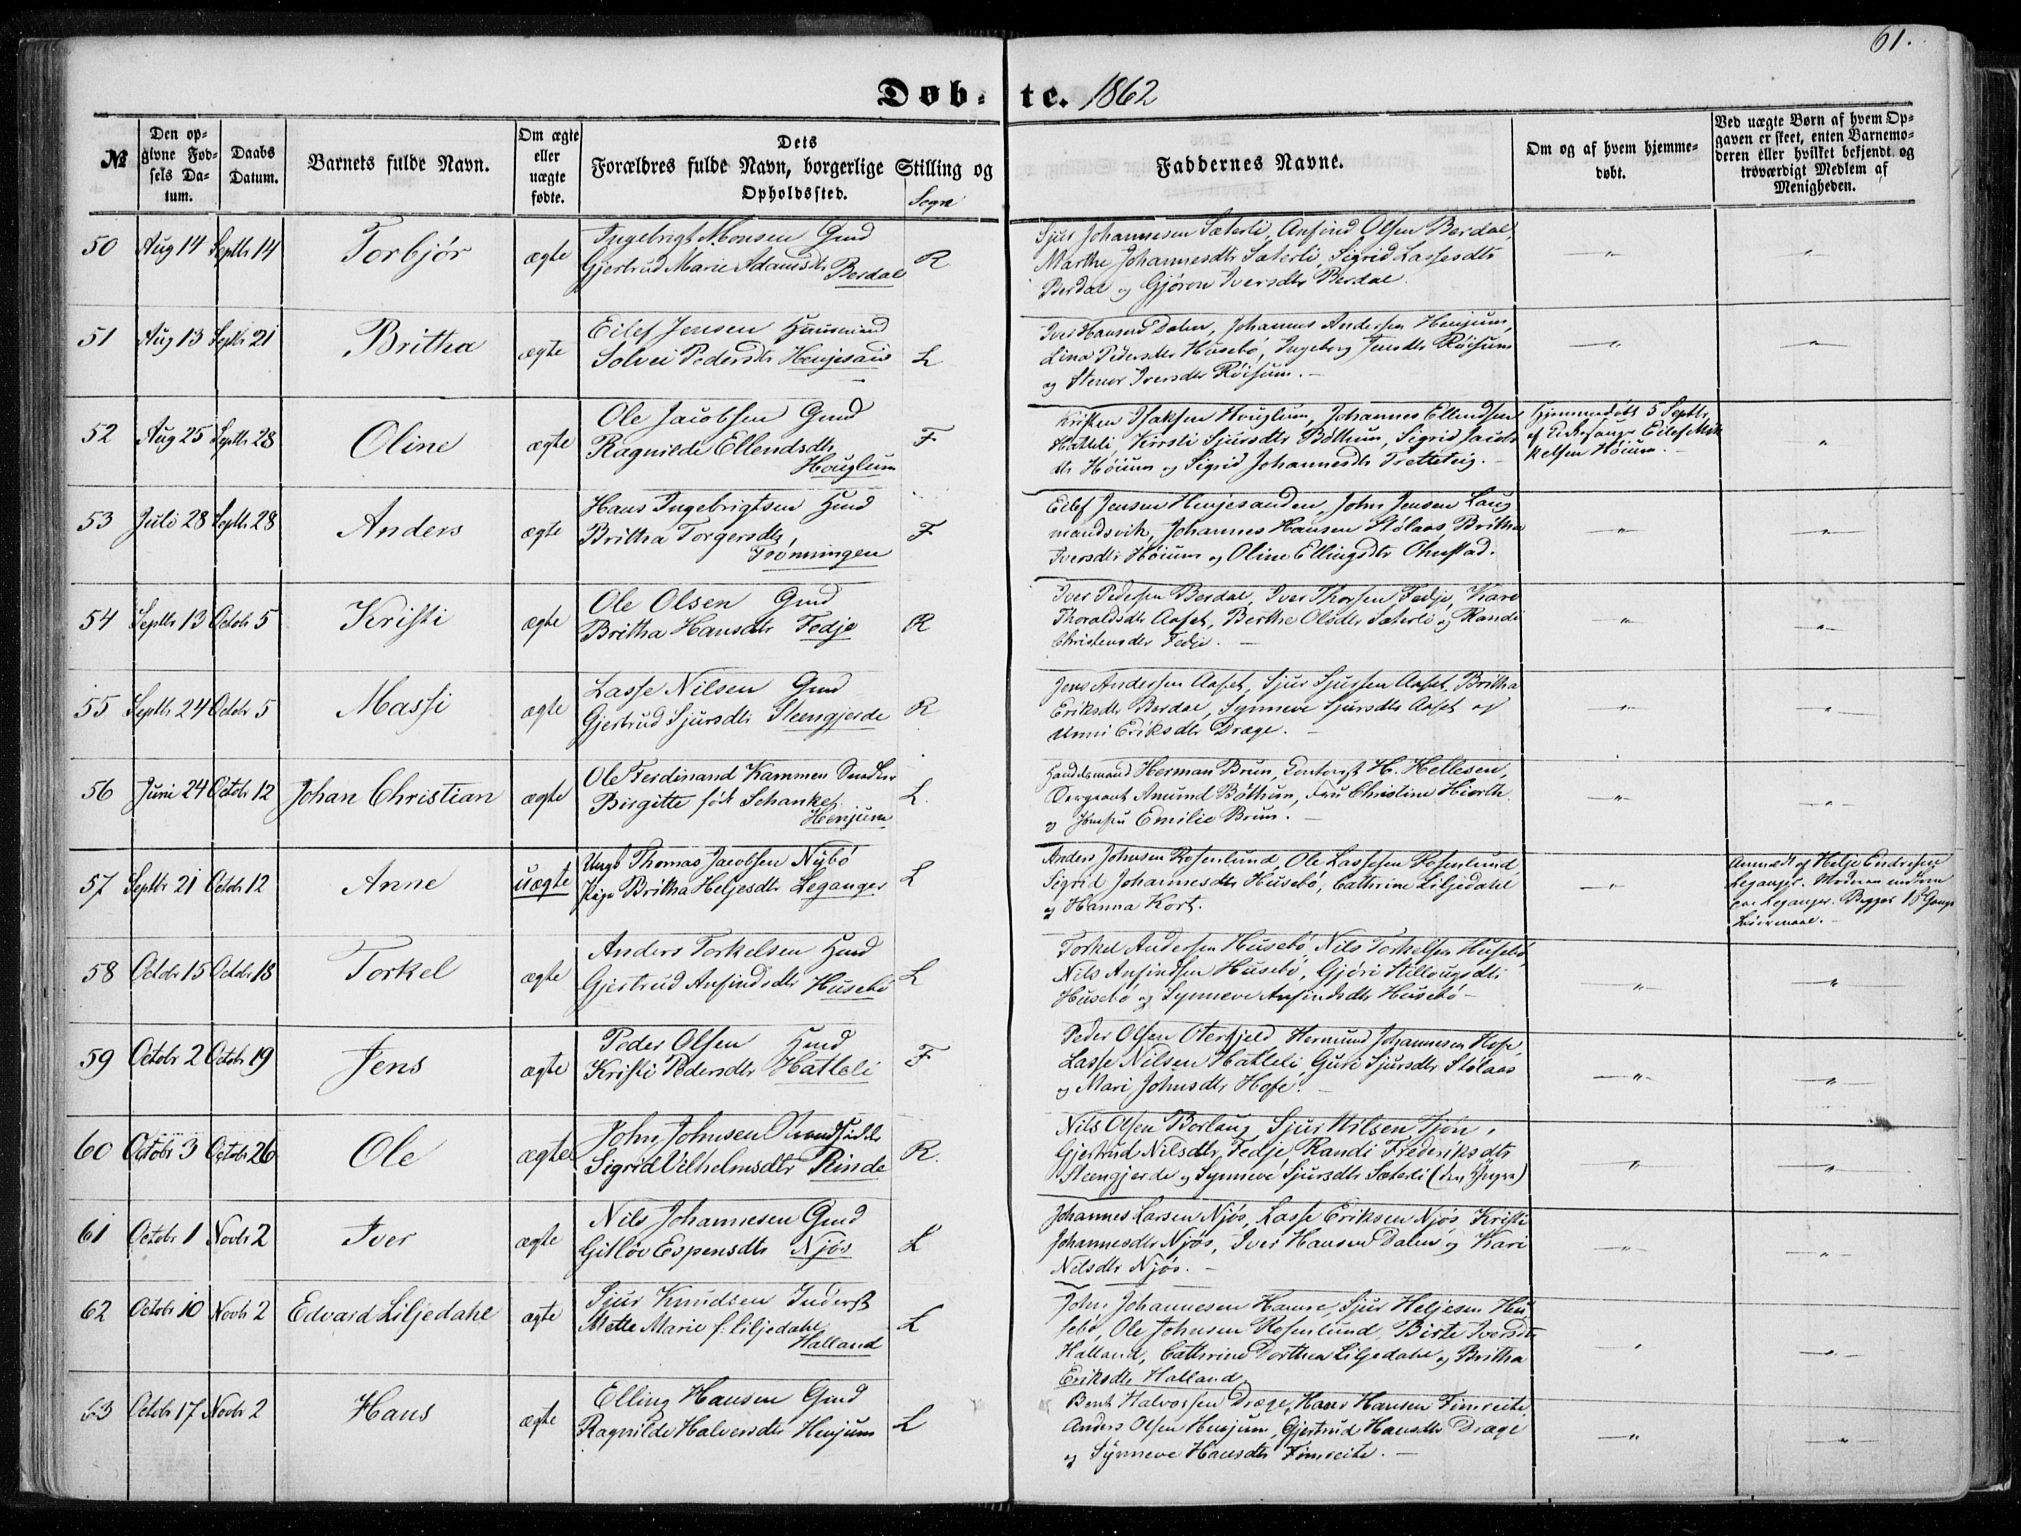 61.
Døb-te. 1862
№
Den op-
givne Fød-
sels Da-
tum.
Daabs
Datum.
Barnets fulde Navn.
Om ægte
eller
uægte
fødte.
Dets
Forældres fulde Navn, borgerlige Stilling og
Opholdssted.
Sogn
Faddernes Navne.
Om og af hvem hjemme-
døbt.
Ved uægte Børn af hvem Op-
gaven er skeet, enten Barnemo-
deren eller hvilket bekjendt og
troværdigt Medlem af
Menigheden.
50 Aug 14 Septbr 14 Torbjør ægte
Ingebrigt Monsen Gmd
Gjertrud Marie Adamsdtr Berdal R
Sjur Johannesen Sæterli, Anfind Olsen Berdal,
Marthe Johannesdtr Sæterli, Sigrid Lassesdtr
Berdal og Gjøron Iversdtr Berdal.
51 Aug 13 Septbr 21 Britha ægte
Eilef Jensen Huusmand
Solvei Pedersdtr Henjesand L
Iver Hansen Dalen, Johannes Andersen Henjum,
Lina Pedersdtr Husebö, Ingeborg Jensdtr Röisum
og Stenor Iversdtr Röisum.
52 Aug 25 Septbr 28 Oline ægte
Ole Jacobsen Gmd
Ragnilde Ellendsdtr
Houglum F
Kristen Isaksen Houglum, Johannes Ellendsen
Hatleli, Kirsti Sjursdtr Bøthun, Sigrid Jacobs
dtr Höium og Sigrid Johannesdtr Tretteteig.
Hjemmedøbt 5 Septbr
af Eilef Mik
kelsen Höium.
53 Juli 28 Septbr 28 Anders ægte
Hans Ingebrigtsen Hmd
Britha Torgersdtr,
Frønningen F
Eilef Jensen Henjesanden, John Jensen Laug
mandsvik, Johannes Hansen Stølaas, Britha
Iversdtr Höium og Oline Ellingsdtr Ohnstad.
54 Septbr 13 Octobr 5 Kristi ægte
Ole Olsen Gmd
Britha Hansdtr Fedje R
Iver Pedersen Berdal, Iver Thorsen Fedje, Kari
Thoraldsdtr Aaset, Berthe Olsdtr Sæterli og Randi
Christensdtr Fedje.
55 Septbr 24 Octobr 5 Massi ægte
Lasse Nilsen Gmd
Gjertrud Sjursdtr Steengjerde R
Jens Andersen Aaset, Sjur Sjursen Aaset, Britha
Eriksdtr Berdal, Synneve Sjursdtr Aaset og
Unni Eriksdtr Drage.
56 Juni 24 Octobr 12 Johan Christian ægte
Ole Ferdinand Kammen Snedker
Birgitte født Schanke,
Henjum L.
Handelsmand Herman Brun, Contorist H. Hellesen,
Sergeant Amund Bøthun, Fru Christine Hiorth
og Jomfru Emilie Brun.
57 Septbr 21 Octobr 12 Anne uægte
Ungk Thomas Jacobsen Nybö
Pige Britha Heljesdtr Leganger L
Anders Johnsen Rosenlund, Ole Lassesen Rosenlund,
Sigrid Johannesdtr Husebö, Cathrine Liljedahl
og Hanna Kort.
Anmeldt af Helje Endresen
Leganger. Moderen
Leganger. Begges 1ste Gangs
Leiermaal.
58 Octobr 15 Octobr 18 Torkel ægte
Anders Torkelsen Hmd
Gjertrud Anfindsdtr Husebö L
Torkel Andersen Husebö, Nils Torkelsen Husebö,
Nils Anfindsen Husebö, Gjöri Hillougsdtr
Husebö og Synneve Anfindsdtr Husebö
59 Octobr 2 Octobr 19 Jens ægte
Peder Olsen Hmd
Kristi Pedersdtr Hatleli F
Peder Olsen Oterhjeld, Hermund Johannesen Hofe,
Lasse Nilsen Hatleli, Guri Sjursdtr Stølaas
og Mari Johnsdtr Hofe.
60 Octobr 3 Octobr 26 Ole ægte
John Johnsen Strandsidder
Sigrid Vilhelmsdtr Rinde R.
Nils Olsen Borlaug, Sjur Nilsen Tjøn,
Gjertrud Nilsdtr Fedje, Randi Frederiksdtr
Steengjerde og Synneve Sjursdtr Sæterli (den Yngre)
61 Octobr 1 Novbr 2 Iver ægte
Nils Johannesen Gmd
Gitlöv Espensdtr Njøs L
Johannes Larsen Njøs, Lasse Eriksen Njøs, Kristi
Johannesdtr Njøs, Iver Hansen Dalen og Kari
Nilsdtr Njøs.
62 Octobr 10 Novbr 2 Edvard Liljedahl ægte
Sjur Knudsen Inderst
Mette Marie f. Liljedahl
Halland L
John Johannesen Hamre, Sjur Heljesen Hu
sebö, Ole Johnsen Rosenlund, Birte Iversdtr
Halland, Cathrine Dorthea Liljedahl og Britha
Eriksdtr Halland.
63 Octobr 17 Novbr 2 Hans ægte
Elling Hansen Gmd
Ragnilde Halversdtr Henjum L
Bent Halvorsen Drage, Hans Hansen Fimreite,
Anders Olsen Henjum, Gjertrud Hansdtr Drage
og Synneve Hansdtr Fimreite.